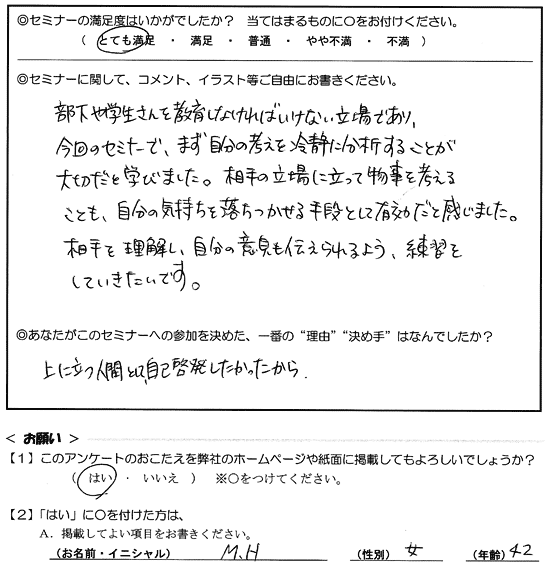 ◎セミナーの満足度はいかがでしたか？ 当てはまるものに〇をお付けください。
（ とても満足 ・ 満足 ・ 普通 ・ やや不満 ・ 不満 ）
◎セミナーに関して、コメント、イラスト等ご自由にお書きください。
部下や学生さんを教育しなければいけない立場であり、
今回のセミナーで、まず自分の考えを冷静に分析することが
大切だと学びました。相手の立場に立って物事を考える
ことも、自分の気持ちを落ちつかせる手段として有効だと感じました。
相手を理解し、自分の意見も伝えられるよう、練習を
していきたいです。
◎あなたがこのセミナーへの参加を決めた、一番の“理由”“決め手”はなんでしたか？
上に立つ人間として、自己啓発したかったから．
＜ お願い ＞
【１】このアンケートのおこたえを弊社のホームページや紙面に掲載してもよろしいでしょうか？
（ はい ・ いいえ ） ※〇をつけてください。
【２】「はい」に〇を付けた方は、
A．掲載してよい項目をお書きください。
（お名前・イニシャル） M.H （性別） 女 （年齢） 42